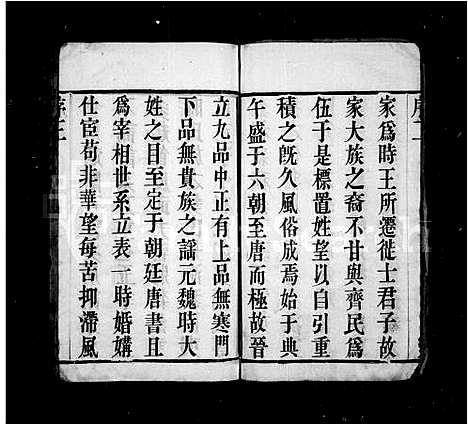 序二
家爲時王所遷徙士君子故
家大族之裔不甘與齊民爲
伍于是標置姓望以自引重
積之旣久風俗成焉始于典
午盛于六朝至唐而極故晉
立九品中正有上品無寒門
下品無貴族之謡元魏時大
姓之目至定于朝廷唐書且
爲宰相世系立表一時婚媾
仕宦苟非華望每苦抑滯風
序三